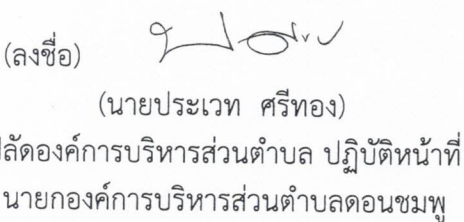 (ลงชื่อ)
(นายประเวท ศรีทอง)
ปลัดองค์การบริหารส่วนตำบล ปฏิบัติหน้าที่
นายกองค์การบริหารส่วนตำบลดอนชมพู